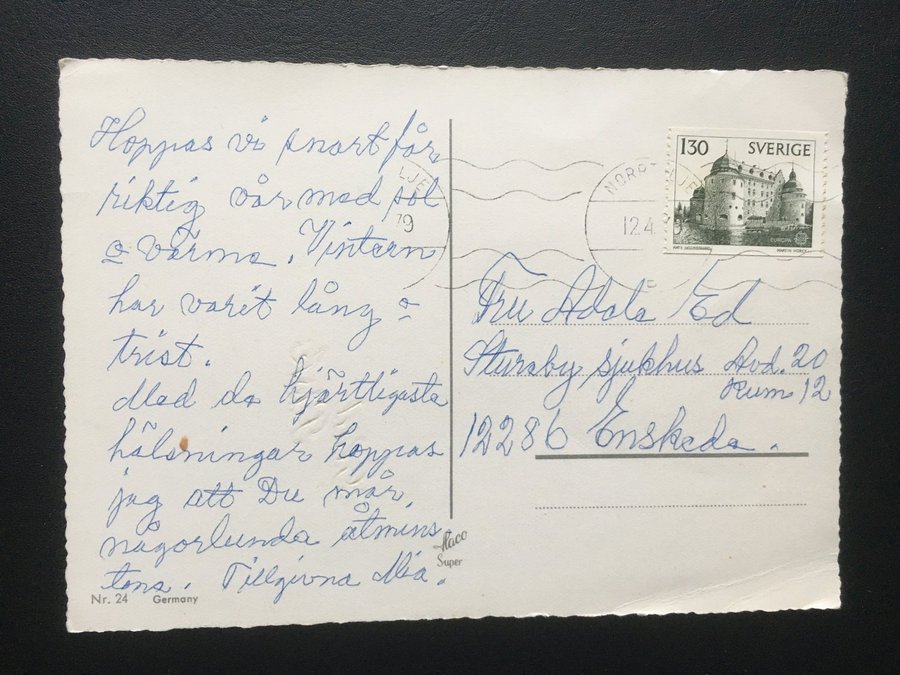 Hoppas vi snart får
riktig vår med sol
o värma. Vintern
har varit lång o
trist.
Med de hjärtligasta
hälsningar hoppas
jag att Du mår
någorlunda åtmins
tone. Tillgivna Mia.
Nr. 24 Germany
Haco
Super
LJE
79
NORRT
LJE
12.4.
130 SVERIGE
EUROPA
Fru Adele Ed
Stureby sjukhus Avd. 20
Rum 12
12286 Enskede.